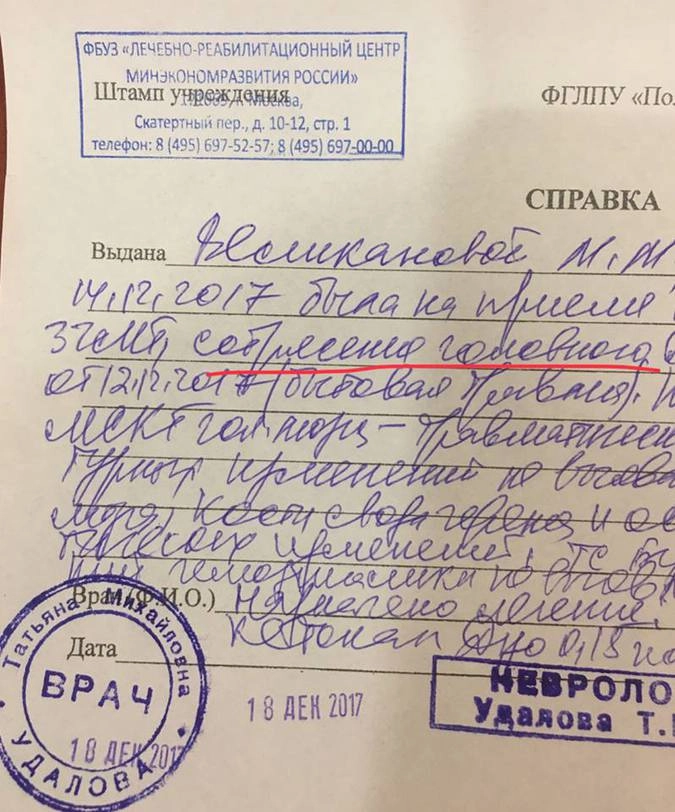 ФБУЗ «ЛЕЧЕБНО-РЕАБИЛИТАЦИОННЫЙ ЦЕНТР
МИНЭКОНОМРАЗВИТИЯ РОССИИ»
Штамп учреждения
Москва,
Скатертный пер., д. 10-12, стр. 1
телефон: 8 (495) 697-52-57; 8 (495) 697-00-00
ФГЛПУ «Пол
СПРАВКА
Выдана Великановой М. М
14.12.2017 была на приеме
ЗЧМТ, сотрясение головного
от 12.12.2017 (бытовая травма).
МСКТ гол. мозга – травматическ
турных изменений не выявл
мозга. Кости свода черепа и ос
изменений.
не выявл
Врач (Ф.И.О.) Назначено лечение:
Дата Кетонал 0,15
Татьяна Михайловна
ВРАЧ
УДАЛОВА
18 ДЕК 2017
18 ДЕК 2017
НЕВРОЛО
Удалова Т.